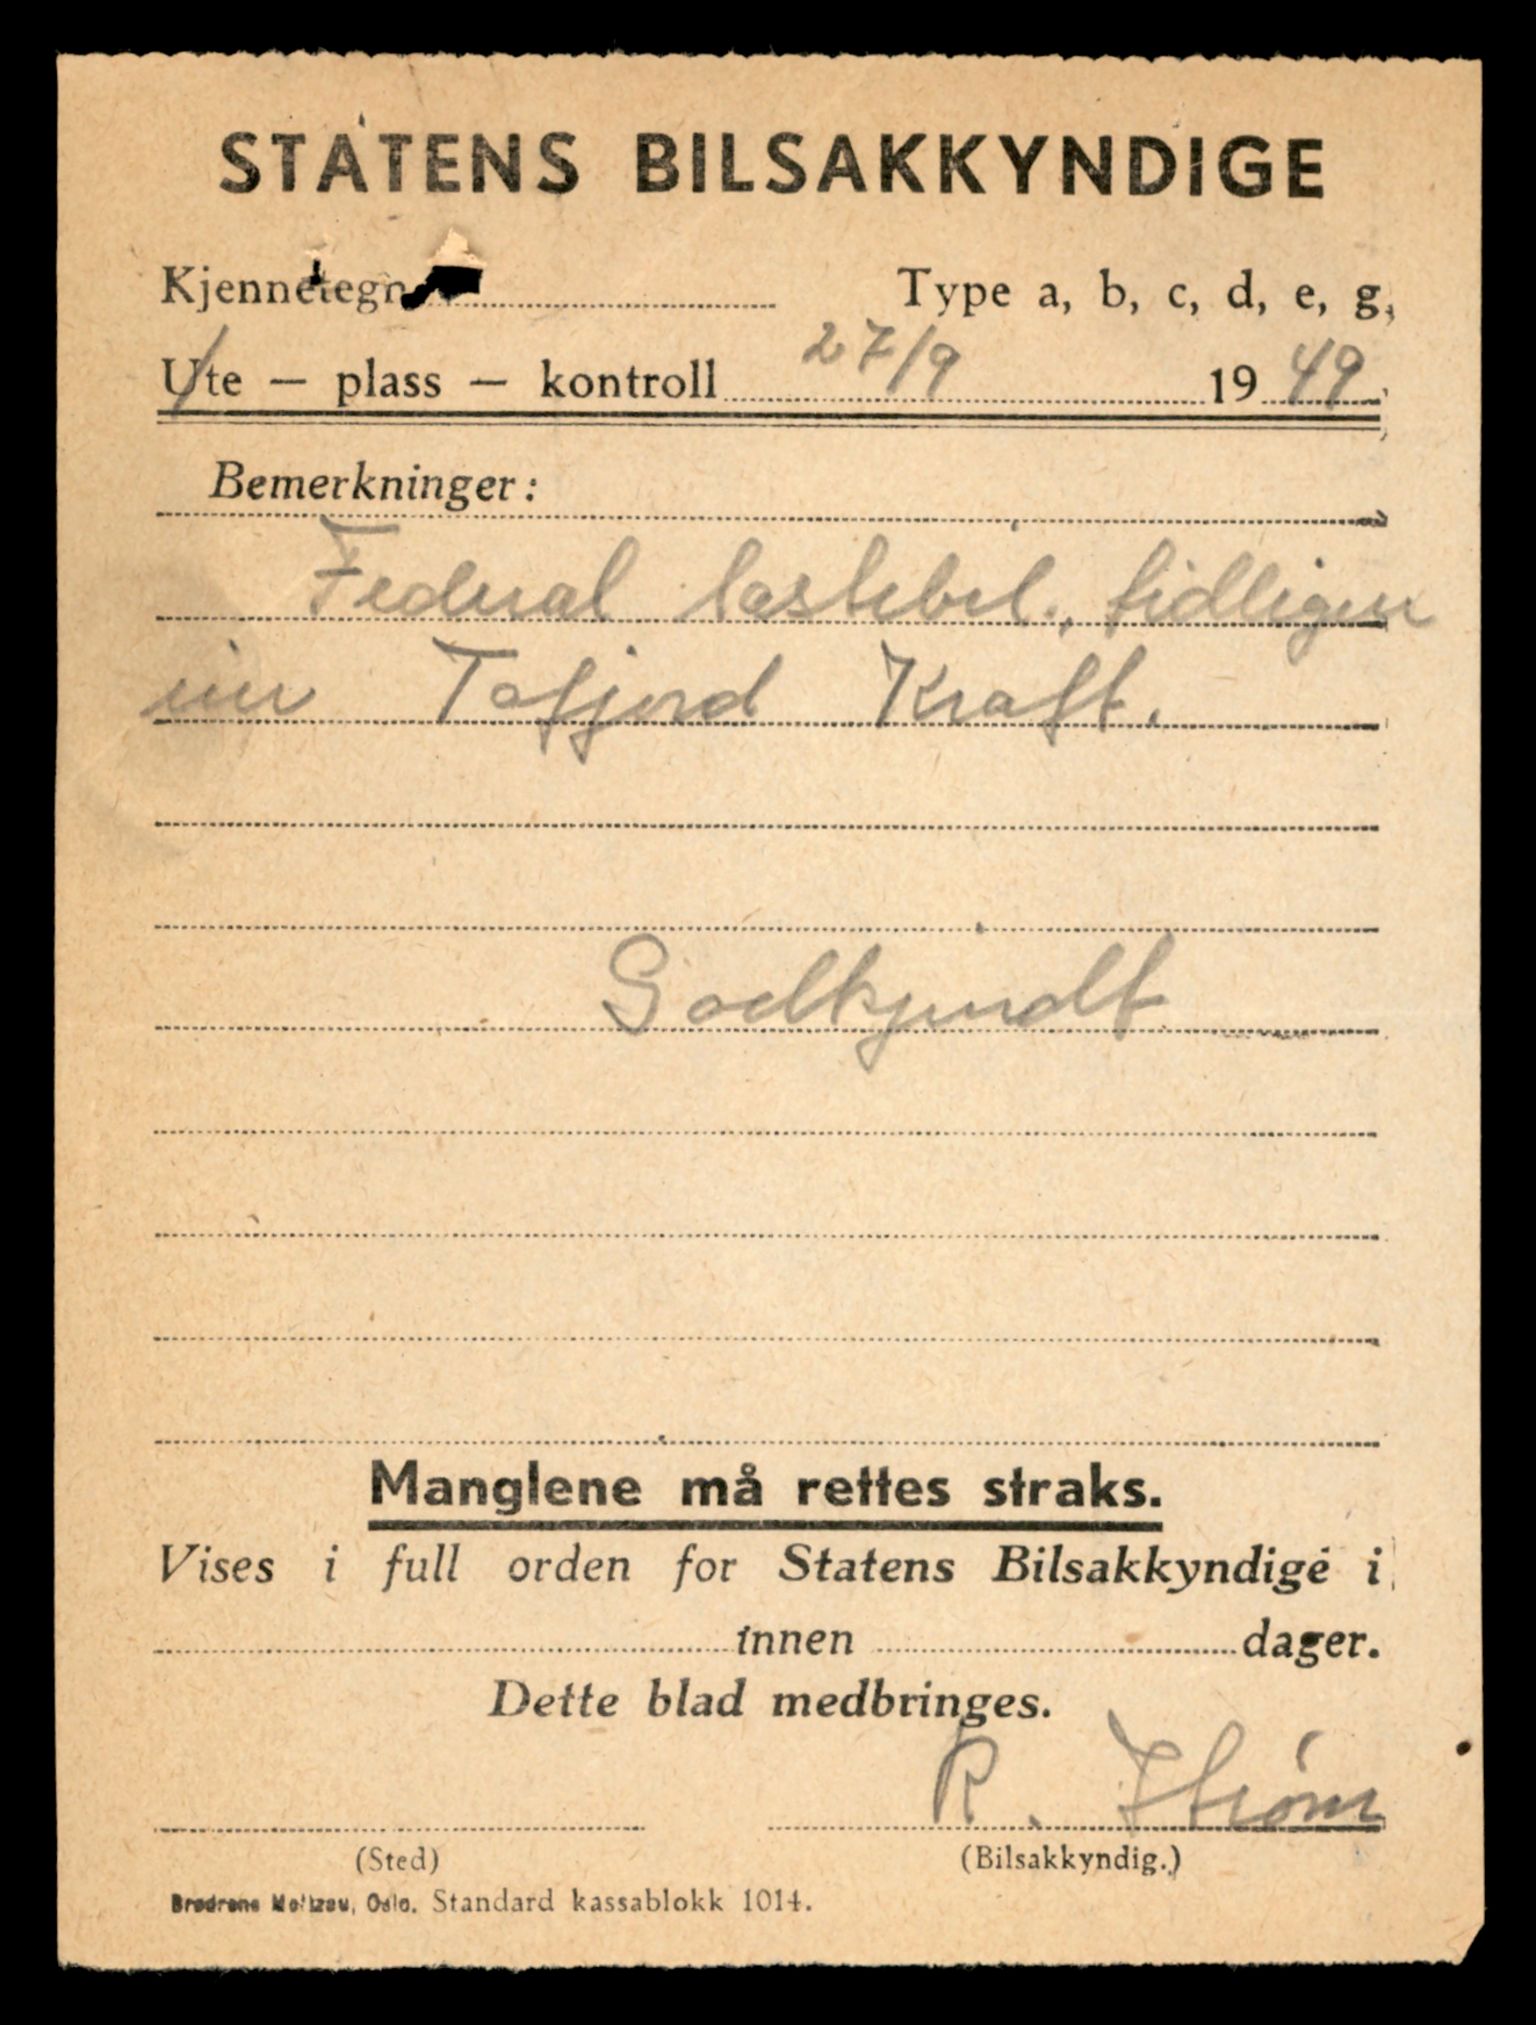 STATENS BILSAKKYNDIGE
Kjennetegn
Type a, b, c, d, e, g,
Ute — plass — kontroll 27/9 1949
Bemerkninger:
Federal lastebil, tidligere
eier Tafjord Kraft.
Godkjendt
Manglene må rettes straks.
Vises i full orden for Statens Bilsakkyndige i
innen dager.
Dette blad medbringes.
R. Strøm
(Sted) (Bilsakkyndig.)
Brødrene Meltzau, Oslo. Standard kassablokk 1014.